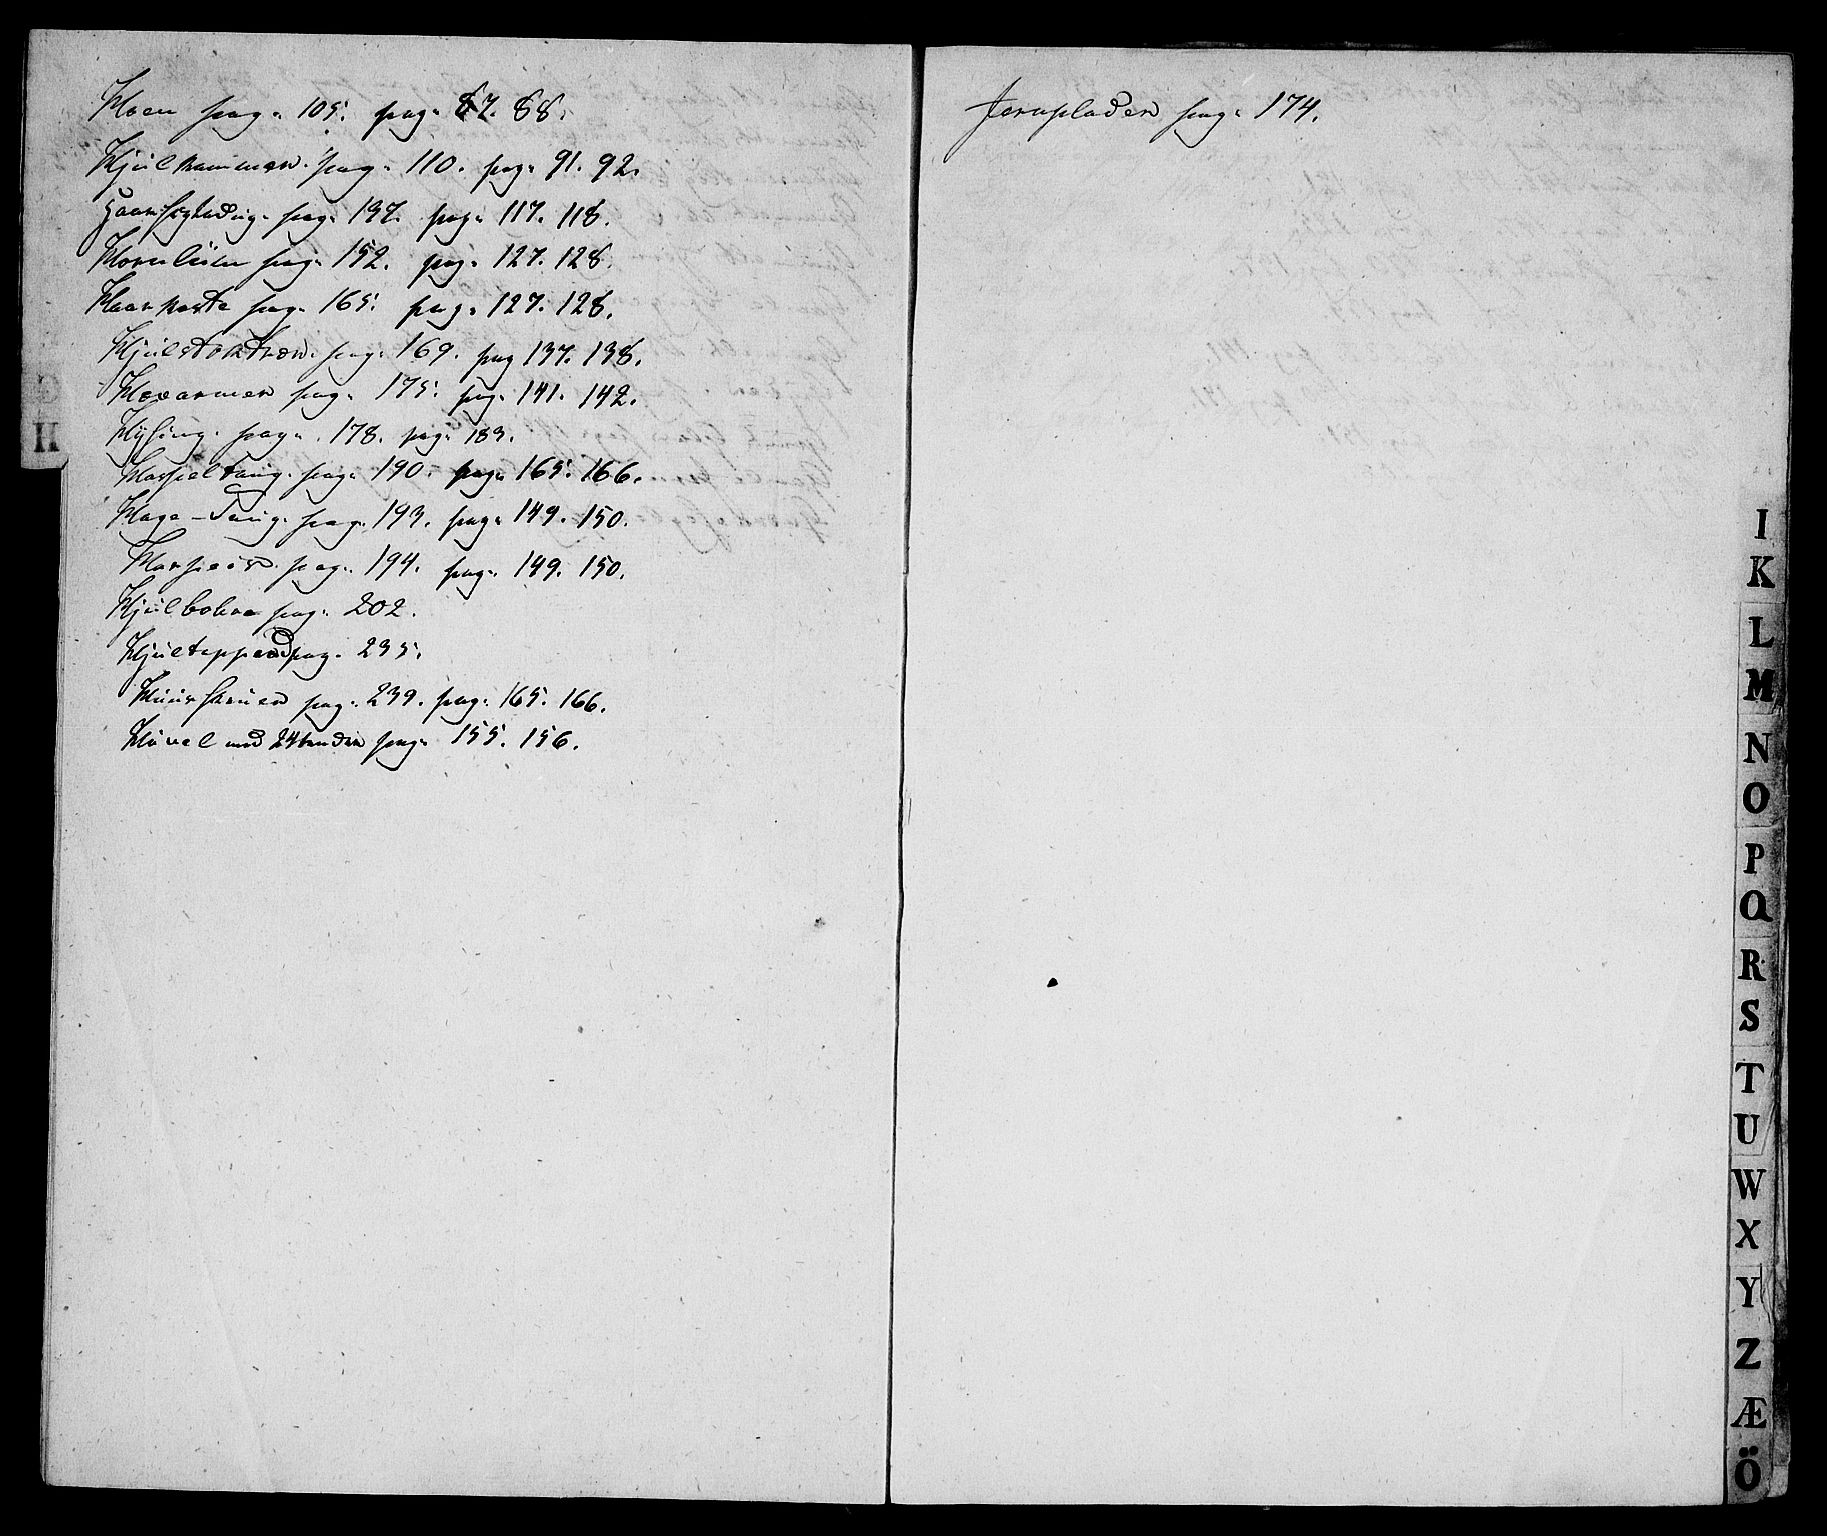 pag. 105. pag. 87. 88.
Hjulkammen. pag. 110. pag. 91. 92.
pag. 137. pag. 117. 118.
pag. 152. pag. 127. 128.
Haarkoste pag. 165. pag. 127. 128.
pag. 169. pag 137. 138.
pag. 175. pag. 141. 142.
Hysing. pag. 178. pag. 183.
Haspeltang. pag. 190. pag. 165. 166.
Hage-Tang. pag. 193. pag. 149. 150.
pag. 194. pag. 149. 150.
pag. 202.
Hjultappen pag. 235.
pag. 239. pag. 165. 166.
Hövel med 24 pag. 155. 156.
G
H
Jernpladen pag. 174.
I
K
L
M
N
O
P
Q
R
S
T
U
W
X
Y
Z
Æ
Ö